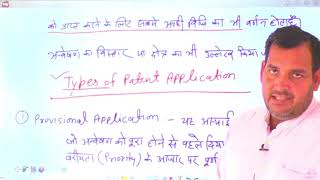 को अमल करने के लिए सबसे अच्छी विधि का भी वर्णन होता है।
अन्वेषण का विस्तार या क्षेत्र का भी उल्लेख किया
* Types of Patent Application
① Provisional Application - यह
जो अन्वेषण को पूरा होने से पहले किया
वरीयता (Priority) के आधार पर पूर्ण